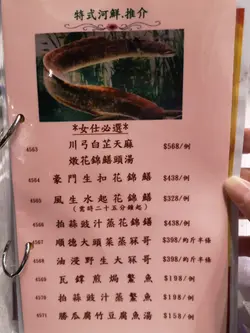 特式河鮮.推介
*女仕必選*
4563 川弓白芷天麻 $568/例
燉花錦鱔頭湯
4564 豪門生扣花錦鱔 $438/例
4565 風生水起花錦鱔 $328/例
(需時二十五分鐘起)
4566 拍蒜豉汁蒸花錦鱔 $438/例
4567 順德大頭菜蒸冧哥 $398/約斤半條
4568 油浸野生大冧哥 $398/約斤半條
瓦鏵煎焗鱉魚 $198/例
拍蒜豉汁蒸鱉魚 $198/例
4571 勝瓜腐竹豆腐魚湯 $158/例